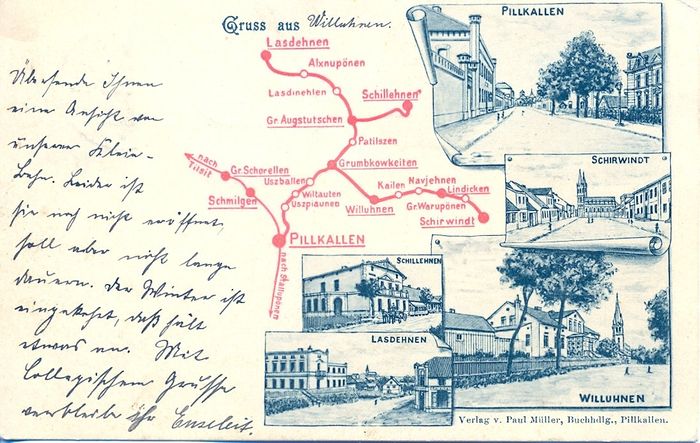 Gruss aus Willuhnen.
Übersende Ihnen
eine Ansicht von
unserer Klein-
bahn. Leider ist
sie noch nicht eröffnet,
soll aber nicht lange
dauern. Der Winter ist
eingekehrt, daß hält
etwas an. Mit
Collegischem Grusse
verbleibe ihr Enseleit.
Lasdehnen
Alxnupönen
Lasdinehlen
Schillehnen
Gr. Augstutschen
Patilszen
Grumbkowkeiten
nach
Tilsit
Gr. Schorellen
Uszballen
Schmilgen
Wiltauten
Uszpiaunen
Kailen
Navjehnen
Lindicken
Willuhnen
Gr. Waruponen
Schirwindt
PILLKALLEN
nach Stallupönen
PILLKALLEN
SCHIRWINDT
SCHILLEHNEN
LASDEHNEN
WILLUHNEN
Verlag v. Paul Müller, Buchhdlg., Pillkallen.